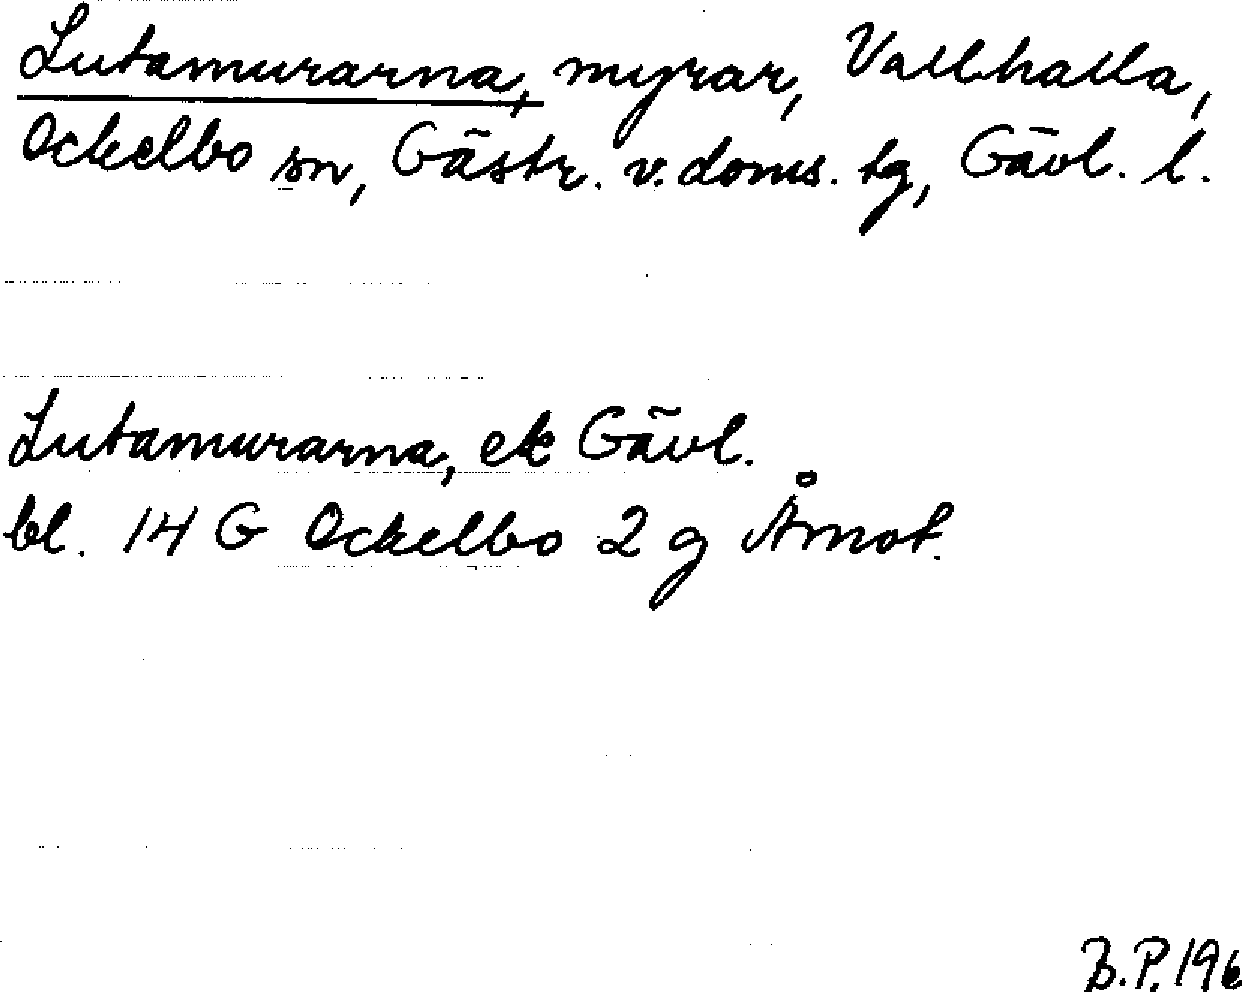 Lutamurarna, myrar, Vallhalla,
Ockelbo sn, Gästr. v. doms. tg, Gävl. l.
Lutamurarna, ek Gävl.
bl. 14 G Ockelbo 2 g Åmot.
B.P. 196